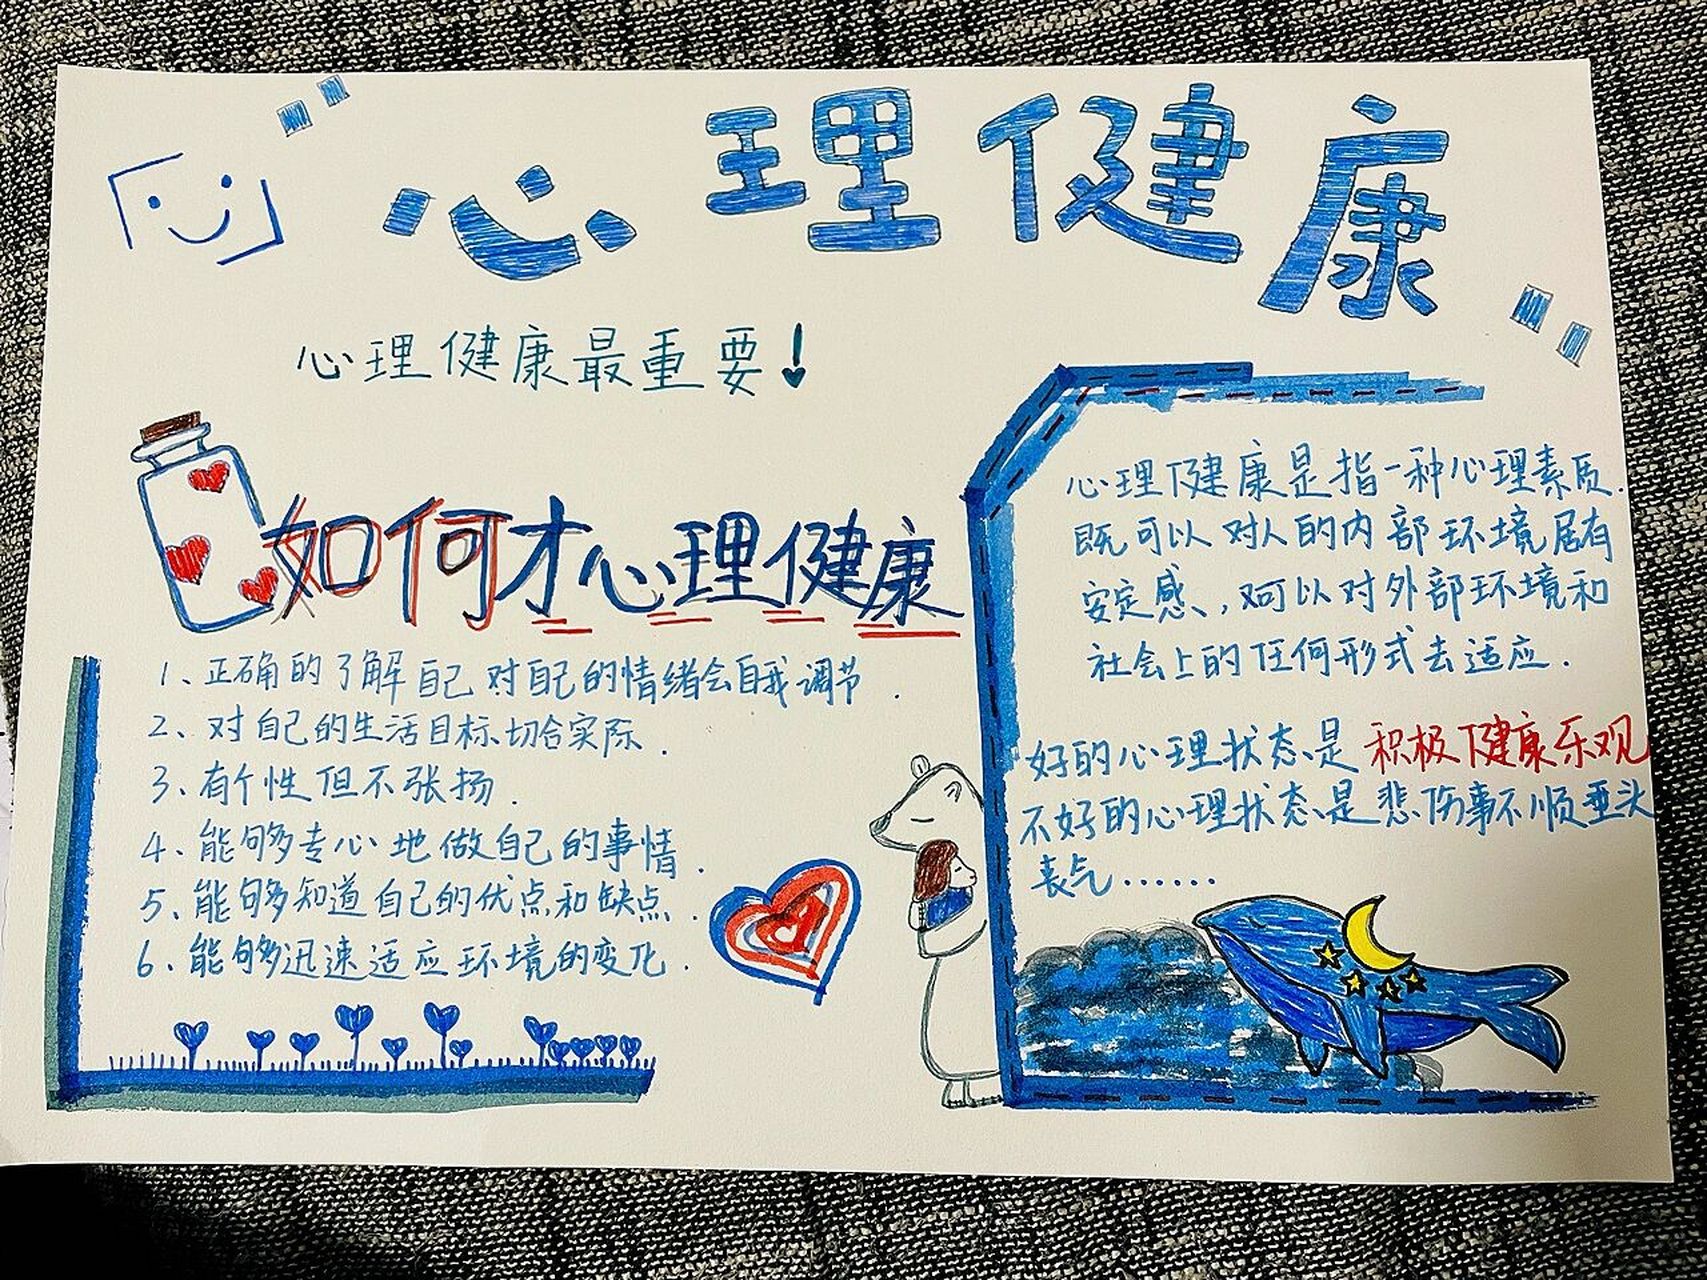 心理健康
心理健康最重要！
如何才心理健康
1、正确的了解自己对自己的情绪会自我调节.
2、对自己的生活目标切合实际.
3、有个性但不张扬.
4、能够专心地做自己的事情.
5、能够知道自己的优点和缺点.
6、能够迅速适应环境的变化.
心理健康是指一种心理素质.
既可以对人的内部环境居有
安定感，又可以对外部环境和
社会上的任何形式去适应.
好的心理状态是积极健康乐观
不好的心理状态是悲伤事不顺垂头
丧气……